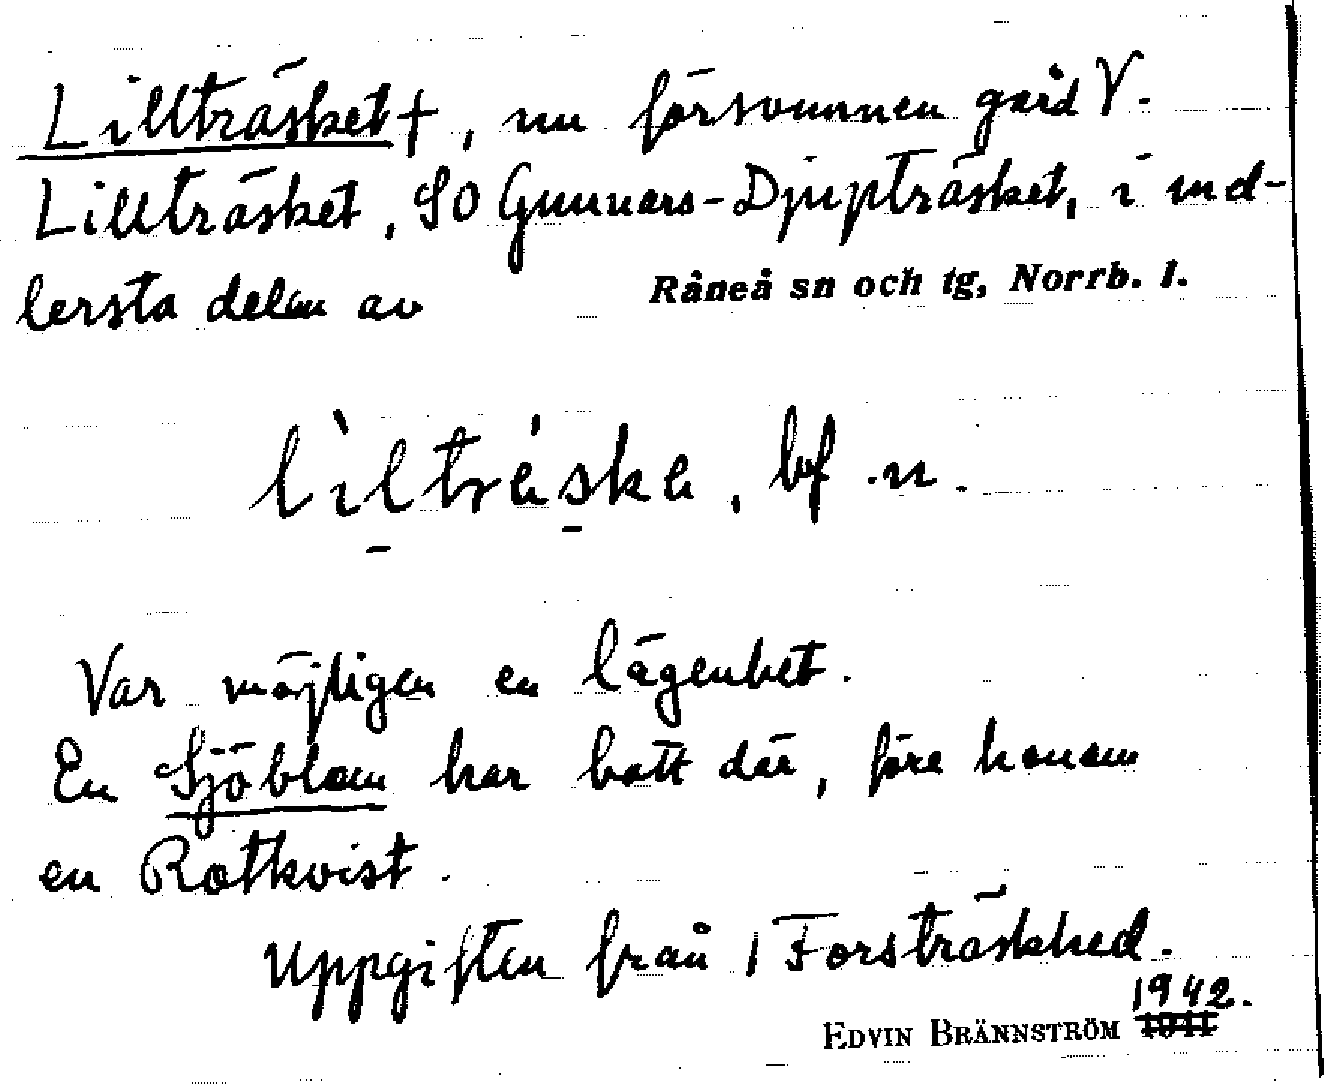 Lillträsket †, nu försvunnen gård V.
Lillträsket, SO Gunnars-Djupträsket, i ind-
lersta delen av Råneå sn och tg, Norrb. l.
lìlträ́ska, bf .n.
Var möjligen en lägenhet.
En Sjöblom har bott där, före honom
en Rotkvist.
Uppgiften från 1 Forsträskhed.
1942.
EDVIN BRÄNNSTRÖM 1941